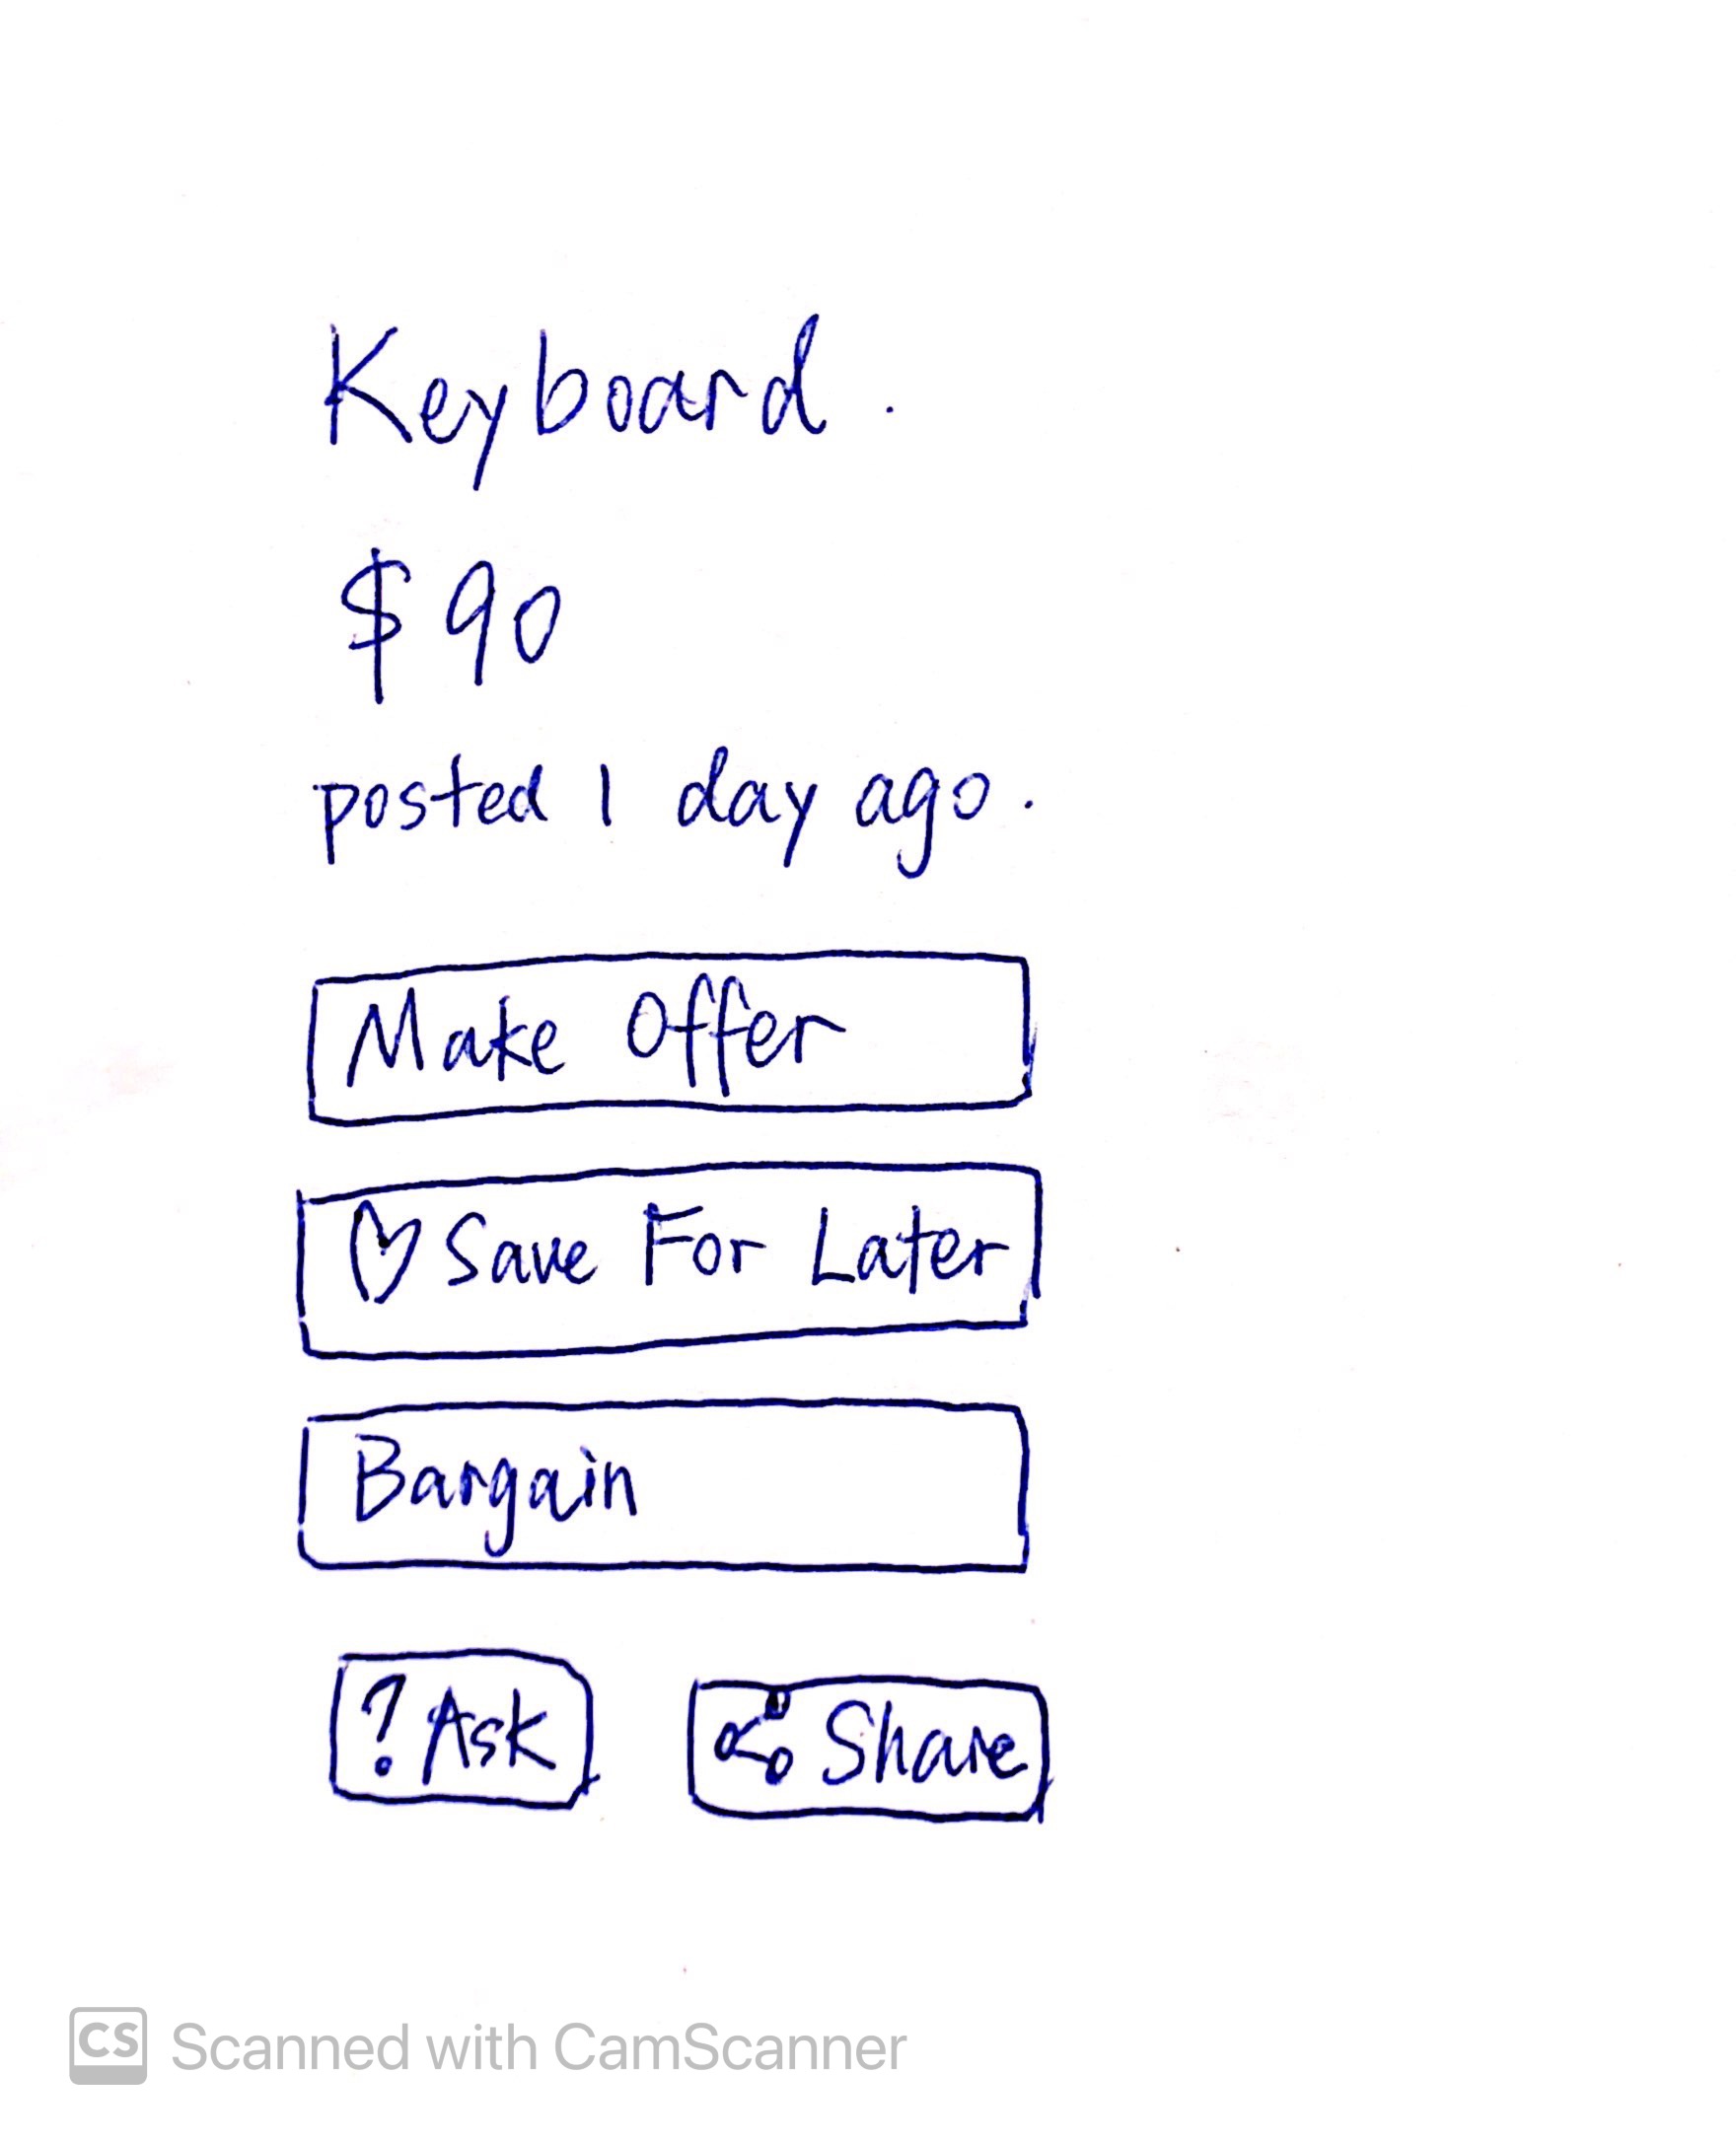 Keyboard.
$90
posted 1 day ago.
Make Offer
♡ Save For Later
Bargain
? Ask
Share
CS Scanned with CamScanner